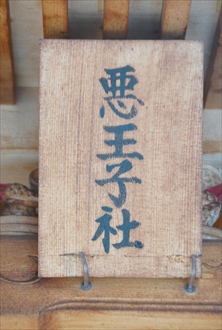 悪王子社